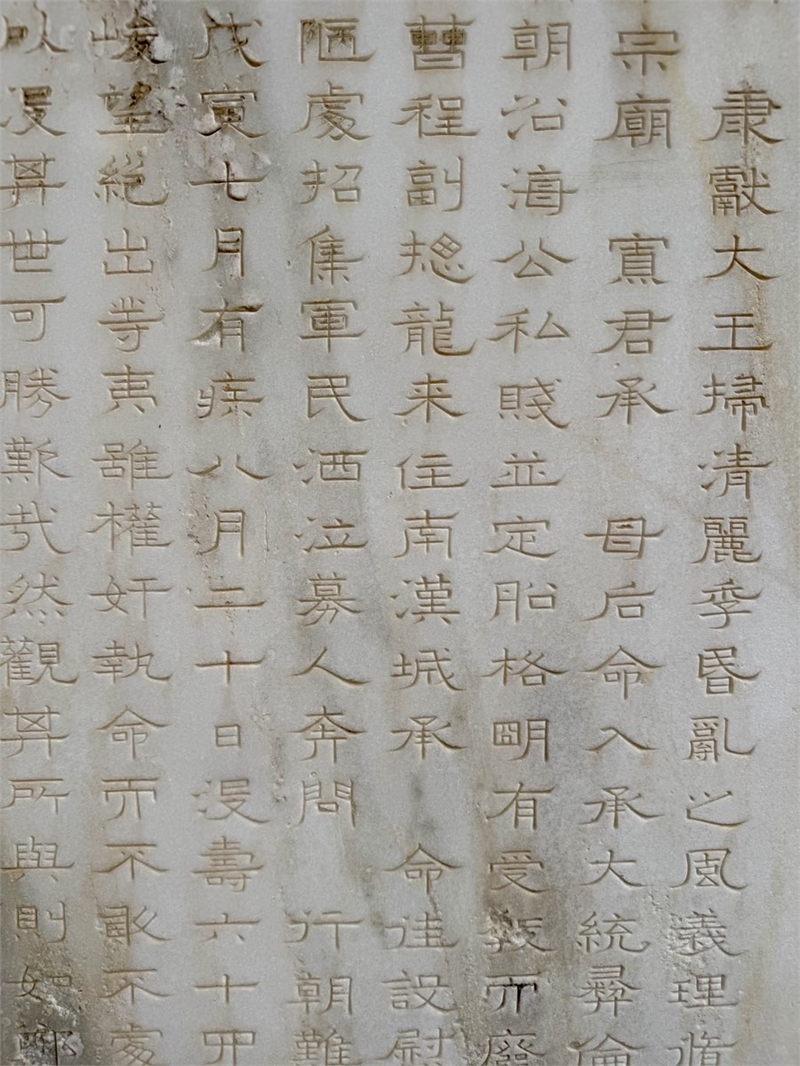 康獻大王掃清麗季昏亂之風義理脩
宗廟 寡君承 母后命入承大統彝倫
朝沿海公私賤並定船格明有受教而廢
曹程副摠龍来住南漢城承 命往設慰
陋處招集軍民洒泣募人奔問 行朝難
戊寅七月有疾八月二十日没壽六十四
峻望絕出等夷雖權奸執命而不敢不處
以没其世可勝歎哉然觀其所與則如鄭